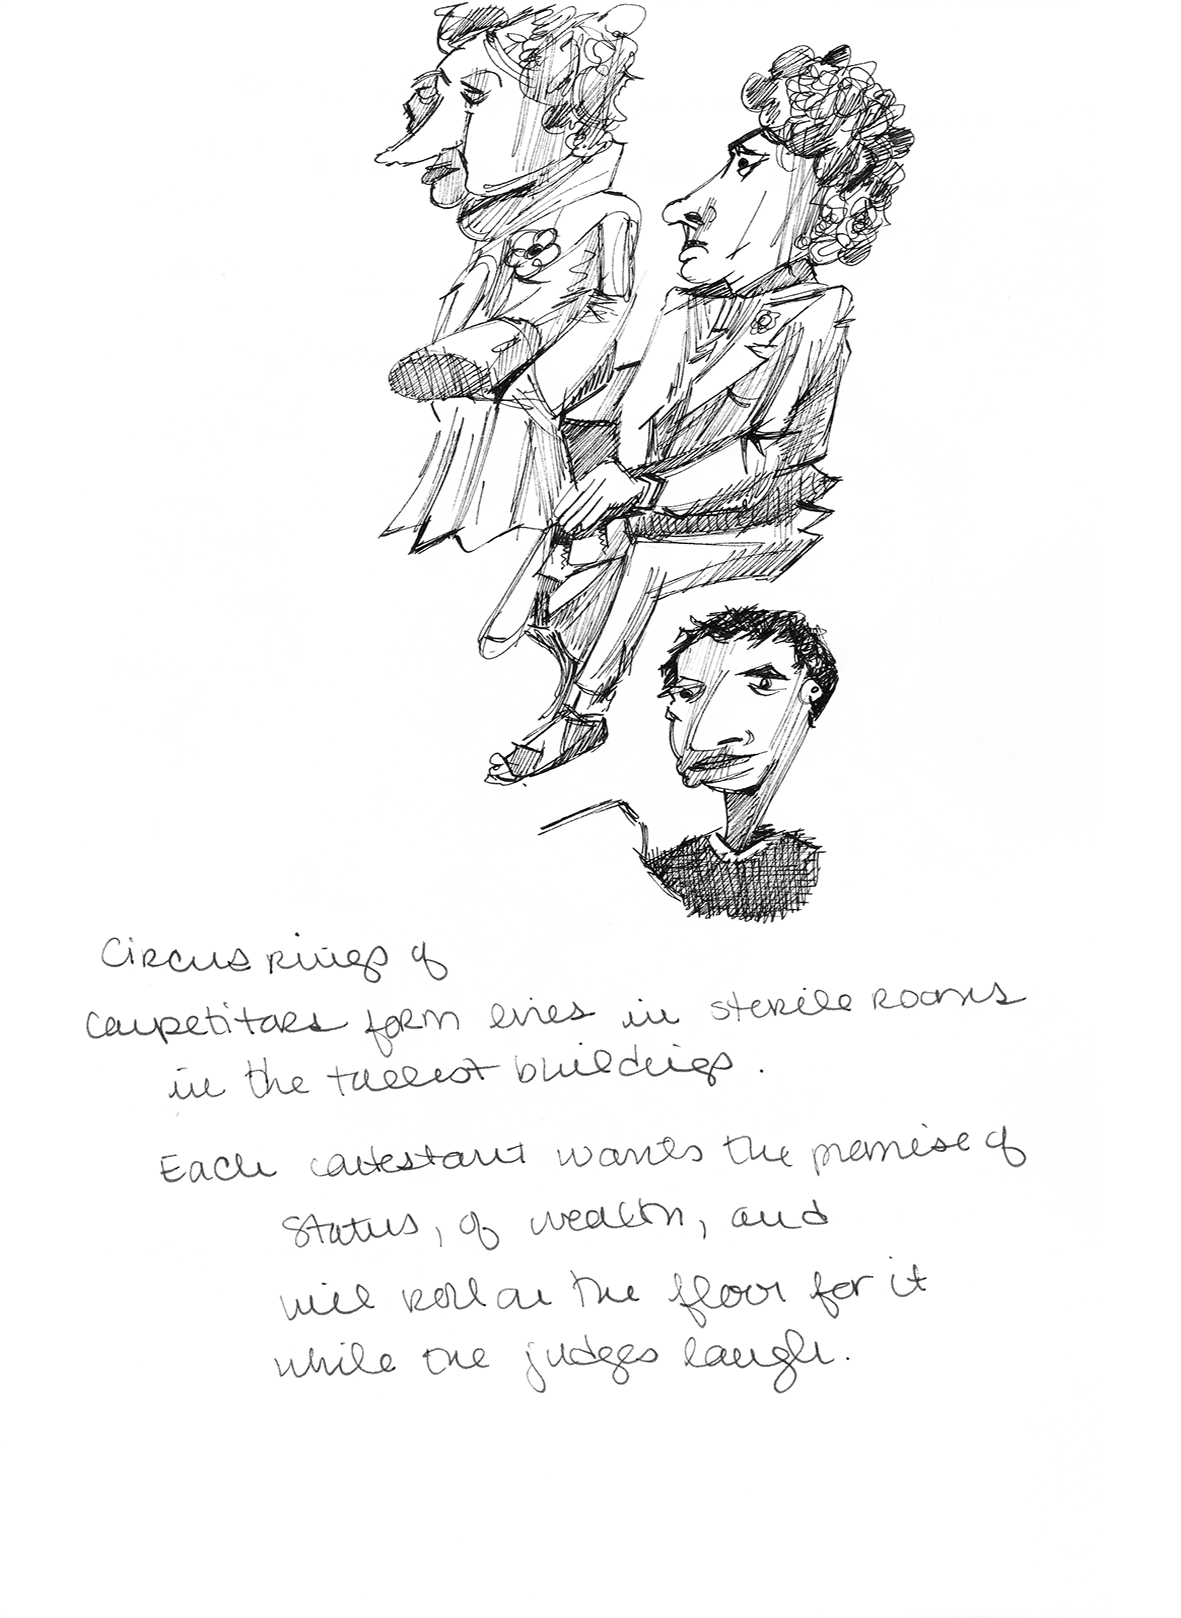 Circus rings of
competitors form lines in sterile rooms
in the tallest buildings.
Each contestant wants the promise of
status, of wealth, and
will roll on the floor for it
while the judges laugh.